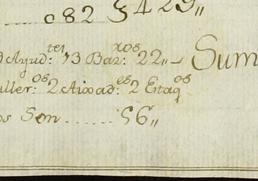 082 §429„
Ayud:tes 13 Bar:xos 22„- Sum
uller:os 2 Aixad:es 2 Etaq:os
os Son ...... 56„